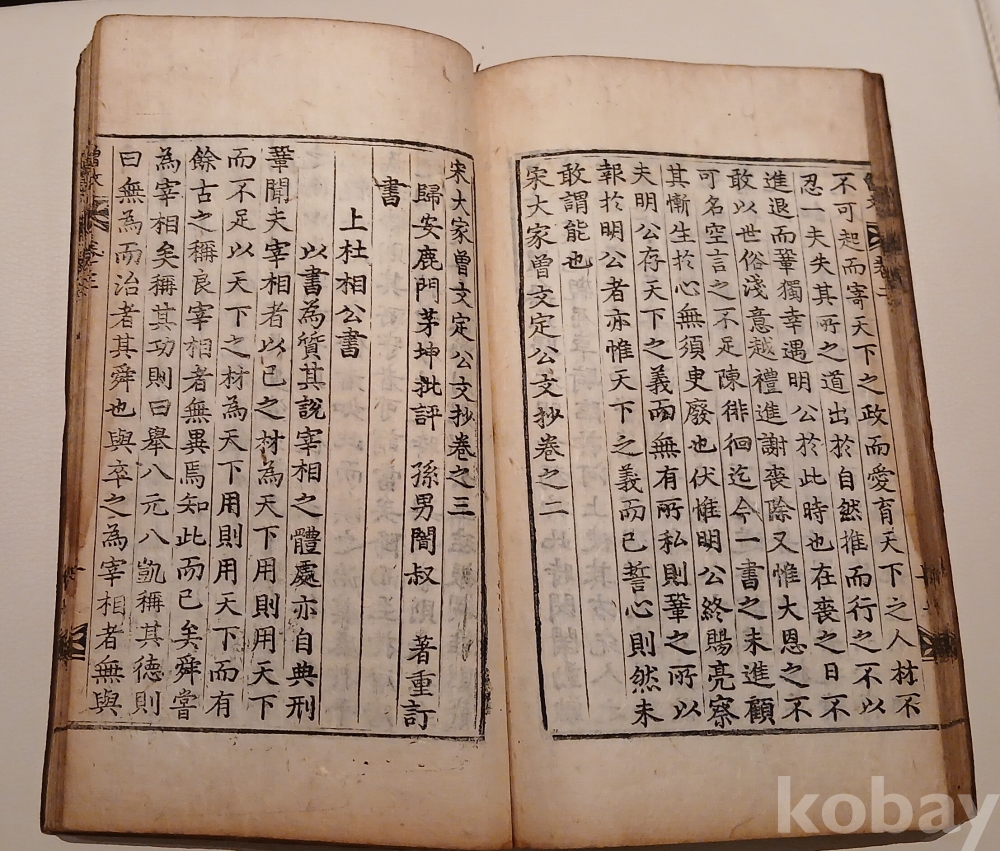 不可起而寄天下之政而愛育天下之人材不
忍一夫失其所之道出於自然推而行之不以
進退而鞏獨幸遇明公於此時也在喪之日不
敢以世俗淺意越禮進謝喪除又惟大恩之不
可名空言之不足陳徘徊迄今一書之未進顧
其慚生於心無須臾廢也伏惟明公終賜亮察
夫明公存天下之義而無有所私則鞏之所以
報於明公者亦惟天下之義而已誓心則然未
敢謂能也
宋大家曾文定公文抄卷之二
宋大家曾文定公文抄卷之三
歸安鹿門茅坤批評 孫男闇叔 著重訂
書
上杜相公書
以書為質其說宰相之體處亦自典刑
鞏聞夫宰相者以己之材為天下用則用天下
而不足以天下之材為天下用則用天下而有
餘古之稱良宰相者無異焉知此而已矣舜嘗
為宰相矣稱其功則曰舉八元八凱稱其德則
曰無為而治者其舜也與卒之為宰相者無與
kobay